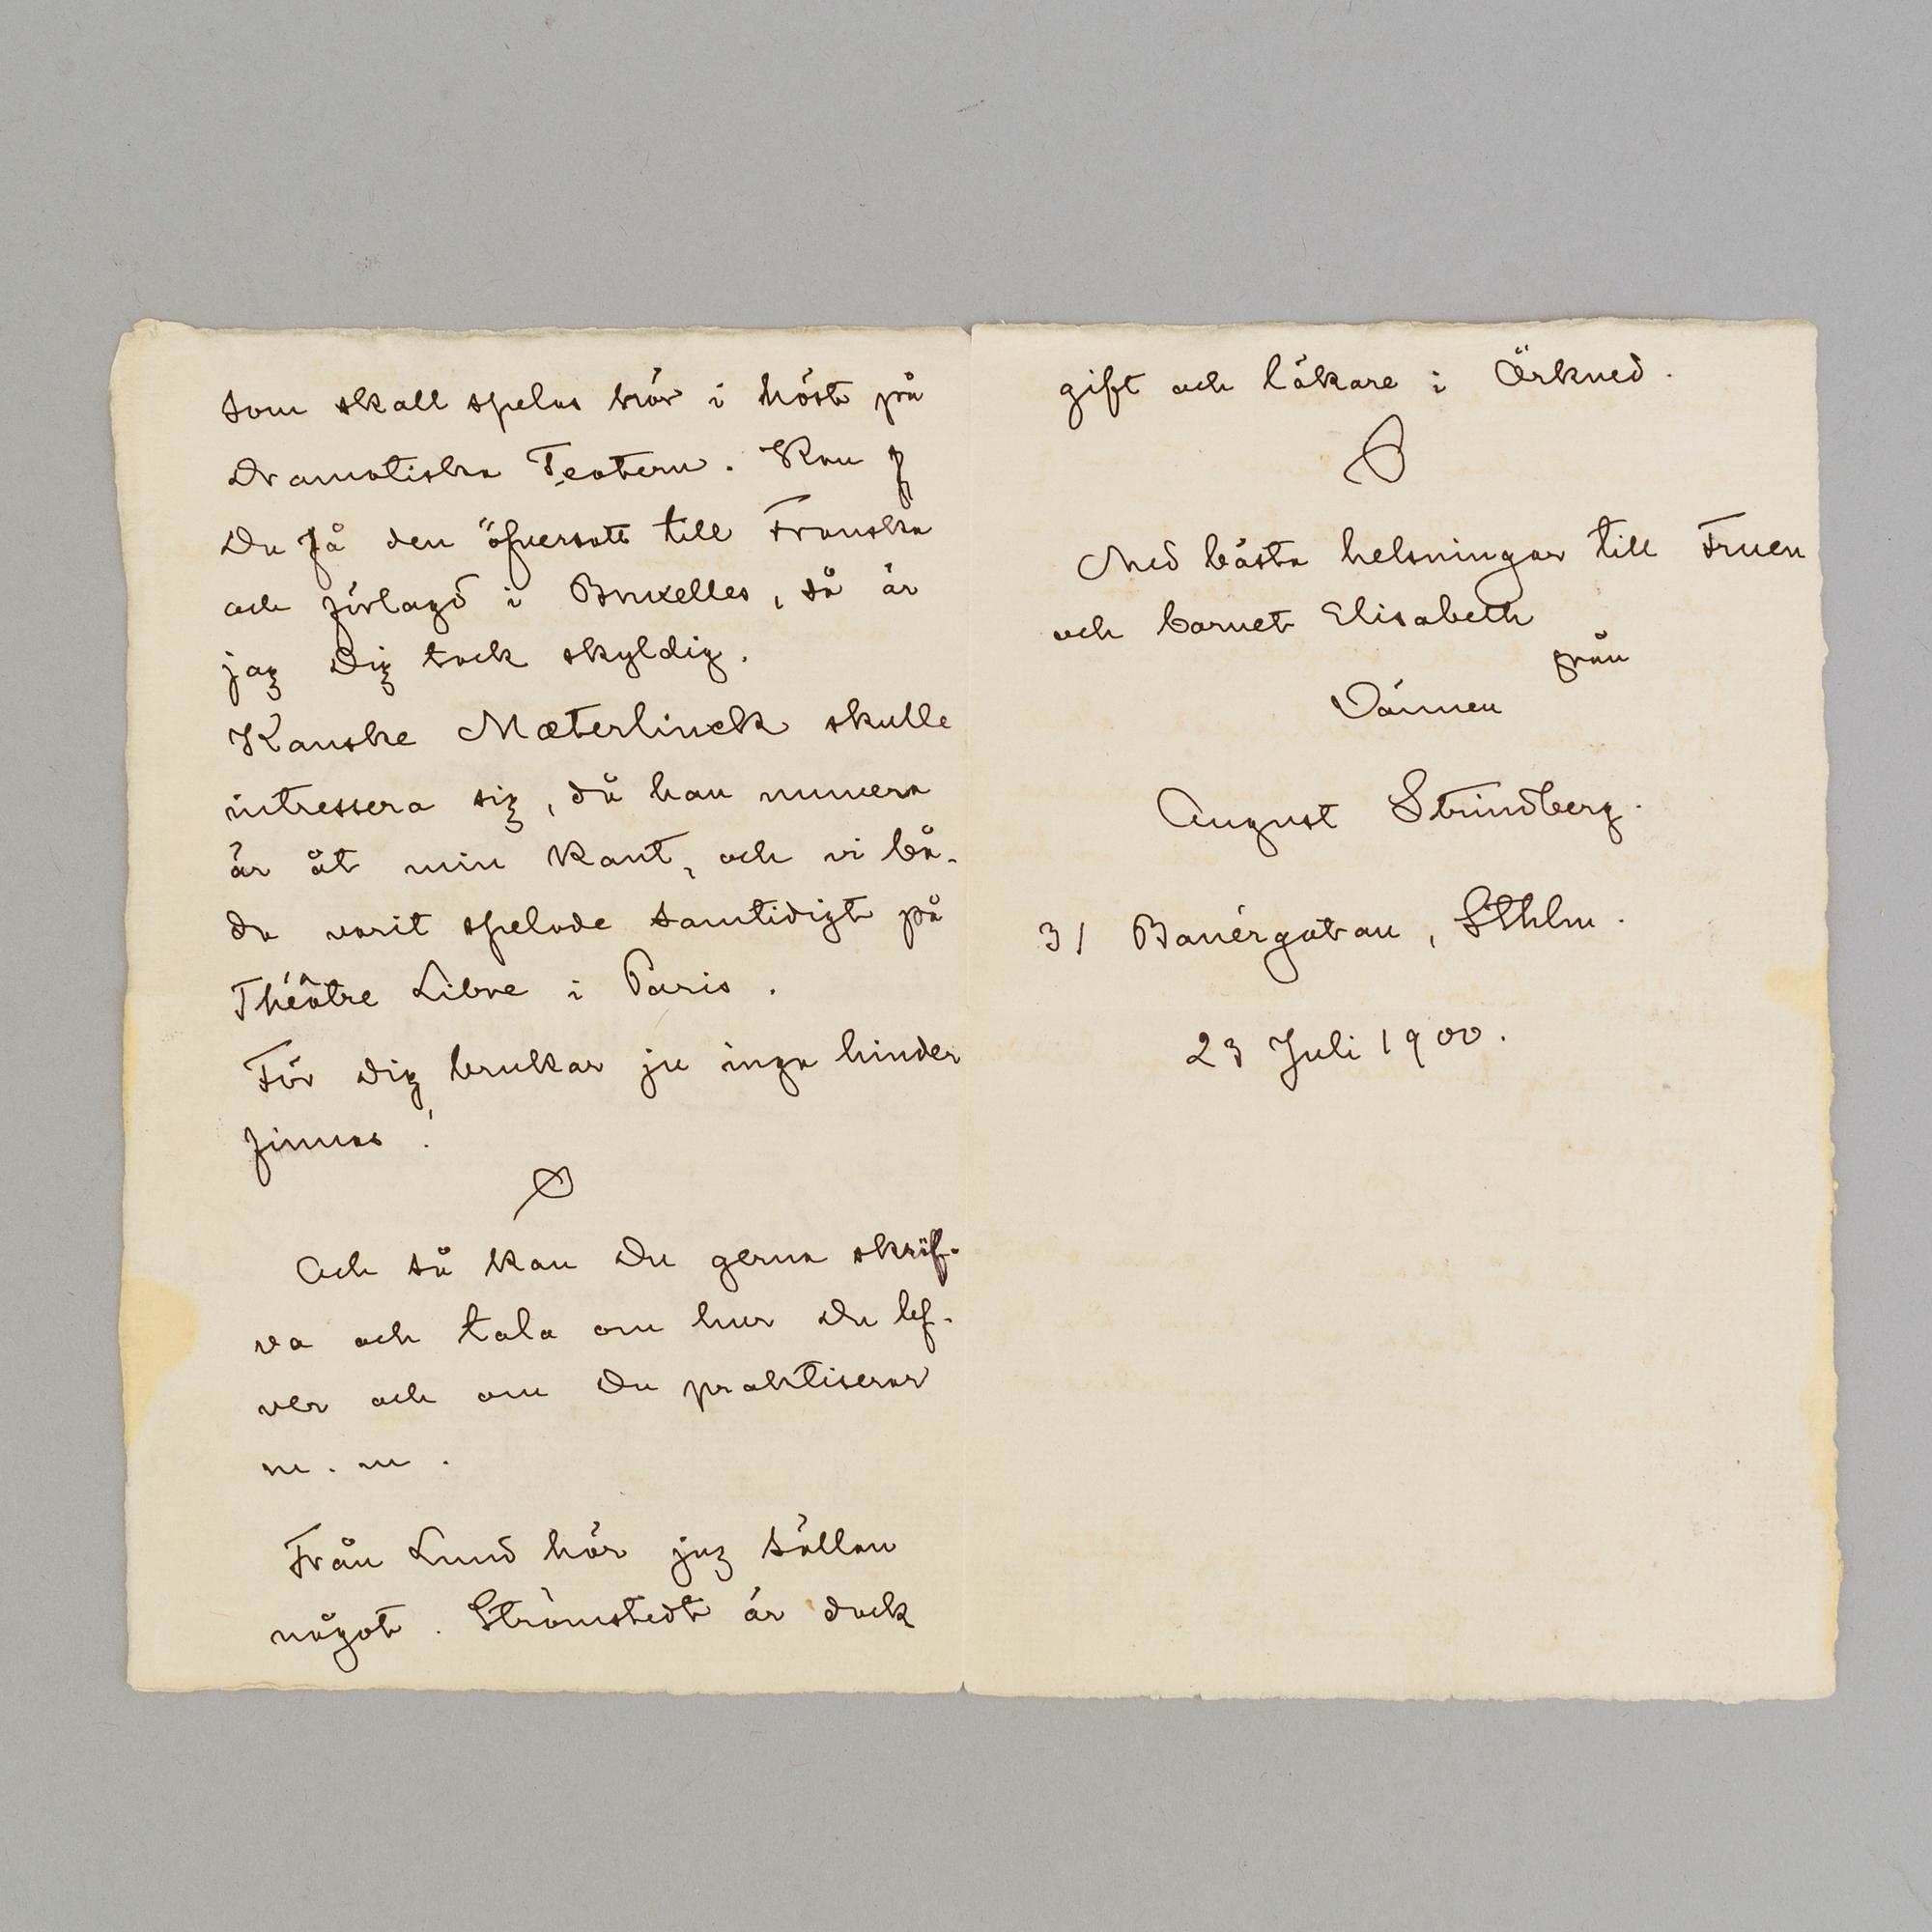 som skall spelas här i höst på
Dramatiska Teatern. Kan
Du få den öfversatt till Franska
och förlagd i Bruxelles, så är
jag Dig tack skyldig.
Kanske Mæterlinck skulle
intressera sig, då han numera
är åt min kant, och vi bå-
da varit spelade samtidigt på
Théâtre Libre i Paris.
För Dig brukar ju inga hinder
finnas!
Och så kan Du gerna skrif-
va och tala om hur Du lef-
ver och om Du praktiserar
m.m.
Från Lund hör jag sällan
något. Strömstedt är dock
gift och läkare i Örkned.
Med bästa helsningar till Fruen
och barnet Elisabeth
från
Vännen
August Strindberg.
31 Banérgatan, Sthlm.
23 Juli 1900.